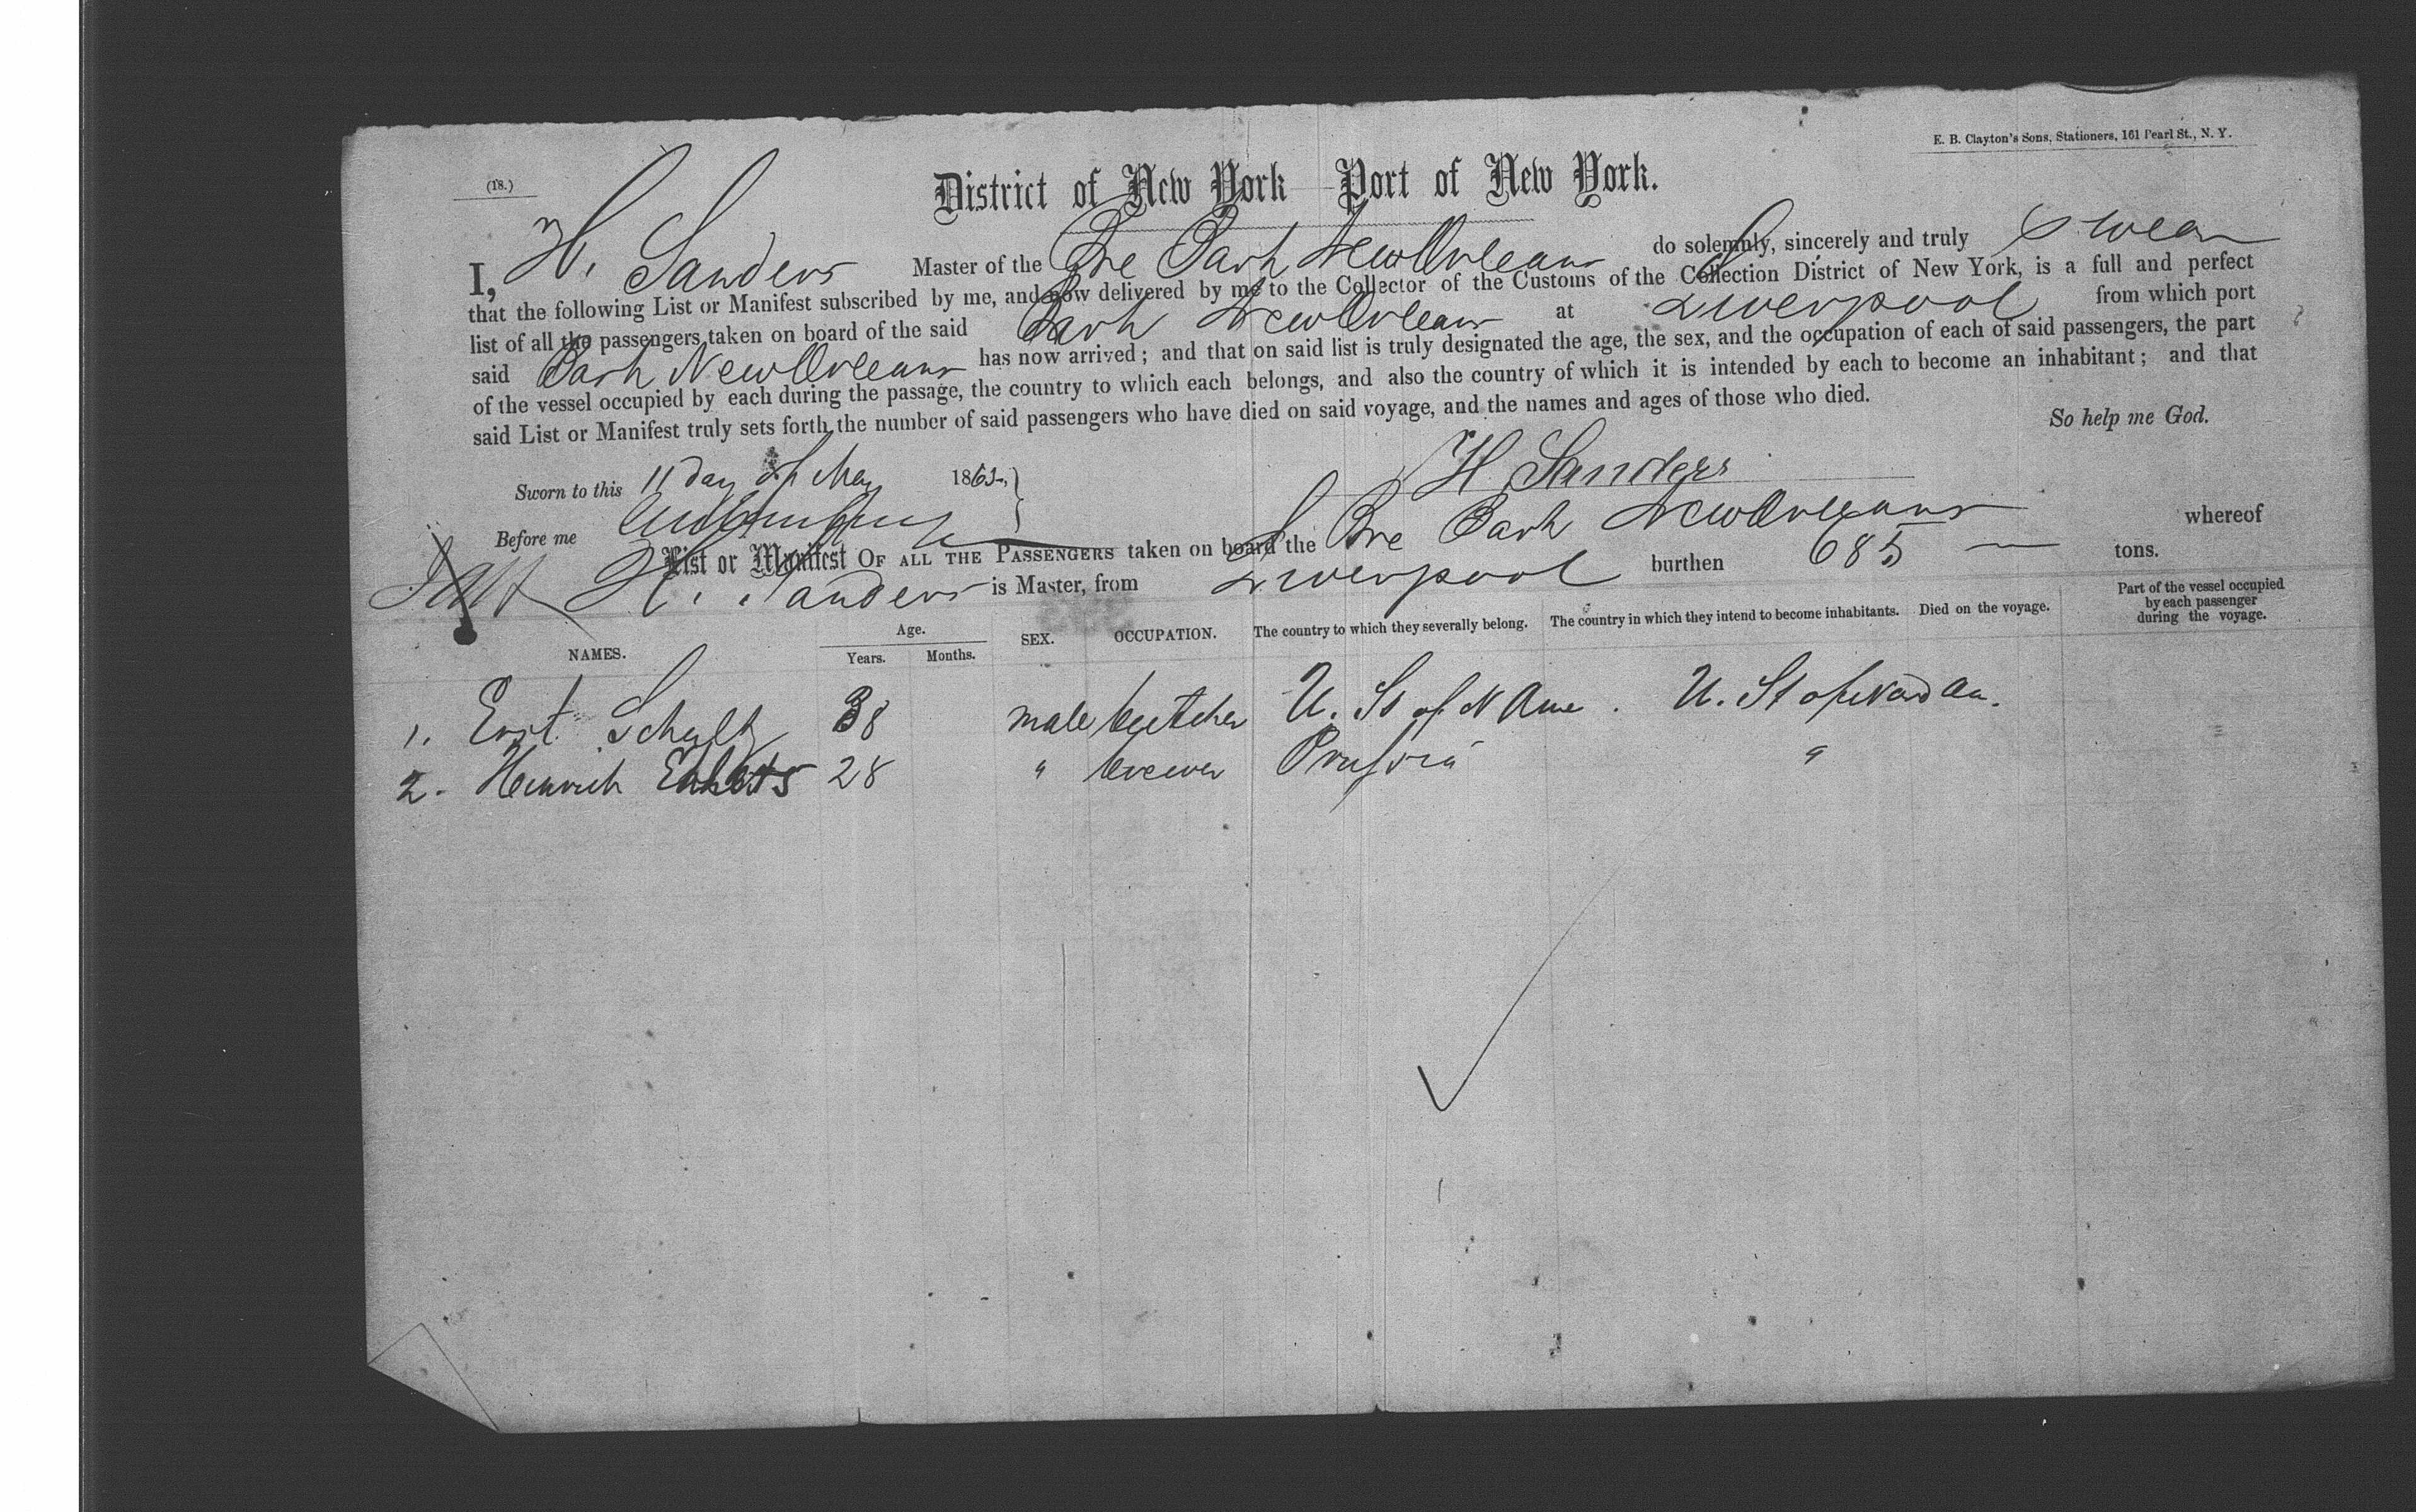 E. B. Clayton's Sons, Stationers, 161 Pearl St., N. Y.
(18.)
District of New York Port of New York.
I, H. Sanders Master of the Bre Bark New Orleans do solemnly, sincerely and truly swear
that the following List or Manifest subscribed by me, and now delivered by me to the Collector of the Customs of the Collection District of New York, is a full and perfect
list of all the passengers taken on board of the said Bark New Orleans at Liverpool from which port
said Bark New Orleans has now arrived; and that on said list is truly designated the age, the sex, and the occupation of each of said passengers, the part
of the vessel occupied by each during the passage, the country to which each belongs, and also the country of which it is intended by each to become an inhabitant; and that
said List or Manifest truly sets forth the number of said passengers who have died on said voyage, and the names and ages of those who died.
So help me God.
Sworn to this 11 day of May 186
H Sanders
Before me
List or Manifest OF ALL THE PASSENGERS taken on board the Bre Bark New Orleans whereof
H. Sanders is Master, from Liverpool burthen 685 tons.
NAMES. Age. Years. Months. SEX. OCCUPATION. The country to which they severally belong. The country in which they intend to become inhabitants. Died on the voyage. Part of the vessel occupied by each passenger during the voyage.
1. Schultz 38 male butcher U. St of N Ame. U. St of Nord Am.
2. Heinrich 28 " brewer Prussia "